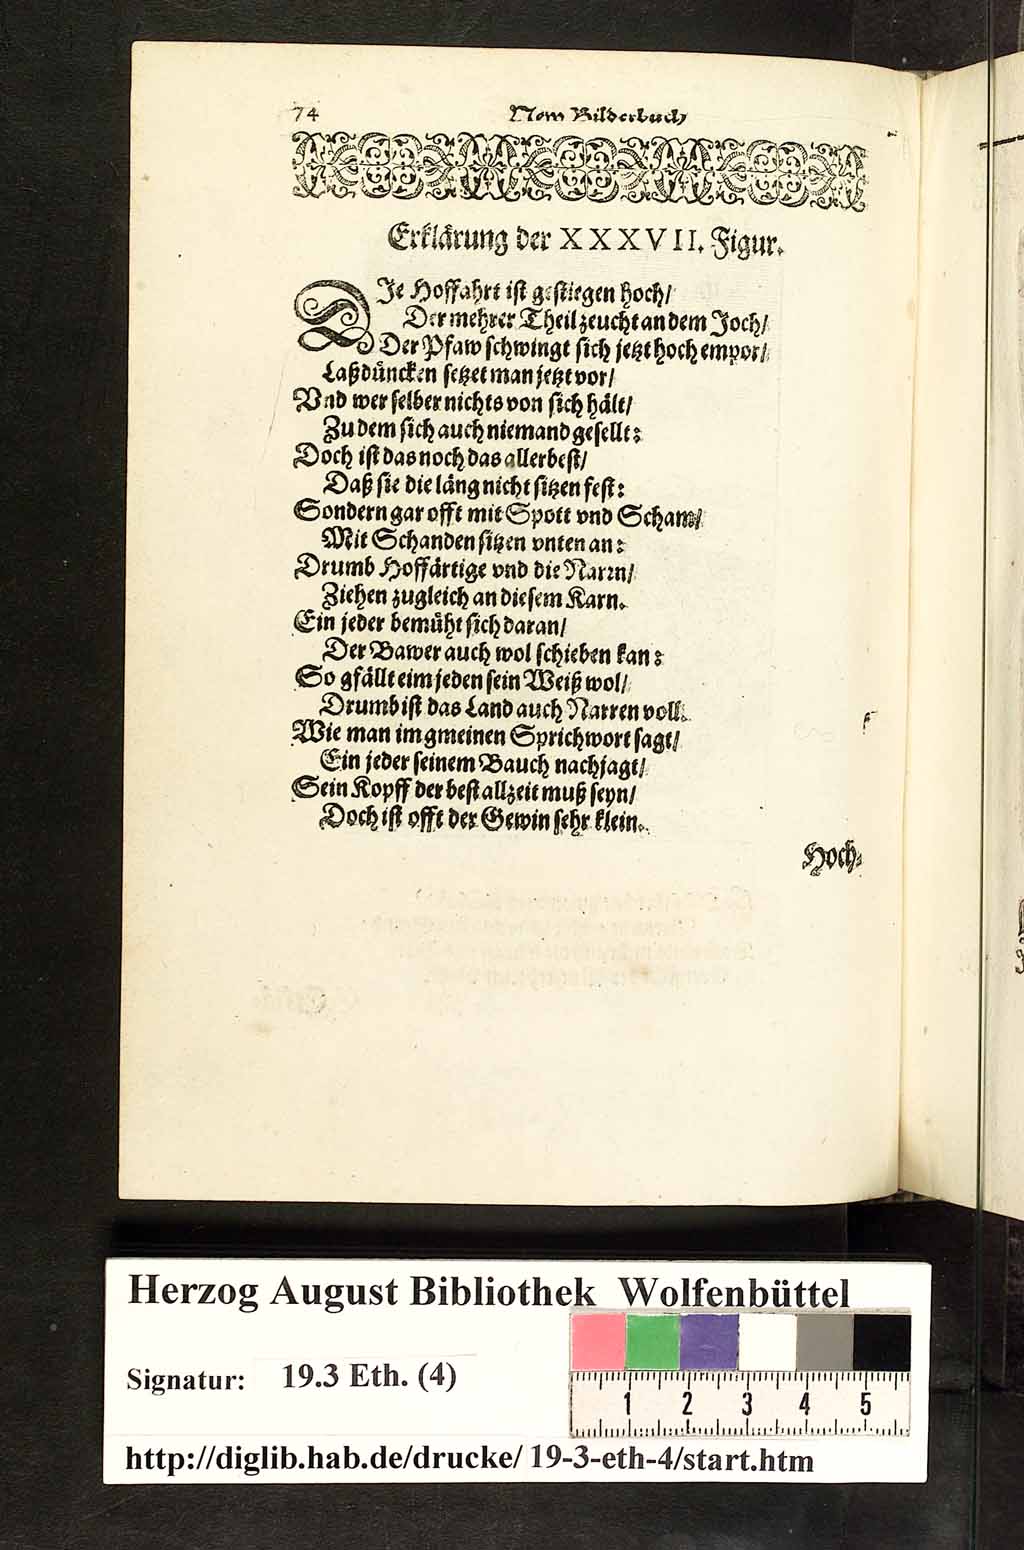 74 Vom Bilderbuch
Erklärung der XXXVII. Figur.
DIe Hoffahrt ist gestiegen hoch/
Der mehrer Theil zeucht an dem Joch/
Der Pfaw schwingt sich jetzt hoch empor/
Laßdüncken setzet man jetzt vor/
Vnd wer selber nichts von sich hält/
Zu dem sich auch niemand gesellt:
Doch ist das noch das allerbest/
Daß sie die läng nicht sitzen fest:
Sondern gar offt mit Spott vnd Scham/
Mit Schanden sitzen vnten an:
Drumb Hoffärtige vnd die Narrn/
Ziehen zugleich an diesem Karn.
Ein jeder bemüht sich daran/
Der Bawer auch wol schieben kan:
So gfällt eim jeden sein Weiß wol/
Drumb ist das Land auch Narren voll.
Wie man im gmeinen Sprichwort sagt/
Ein jeder seinem Bauch nachjagt/
Sein Kopff der best allzeit muß seyn/
Doch ist offt der Gewin sehr klein.
Hoch-
Herzog August Bibliothek Wolfenbüttel
Signatur: 19.3 Eth. (4)
1 2 3 4 5
http://diglib.hab.de/drucke/ 19-3-eth-4/start.htm